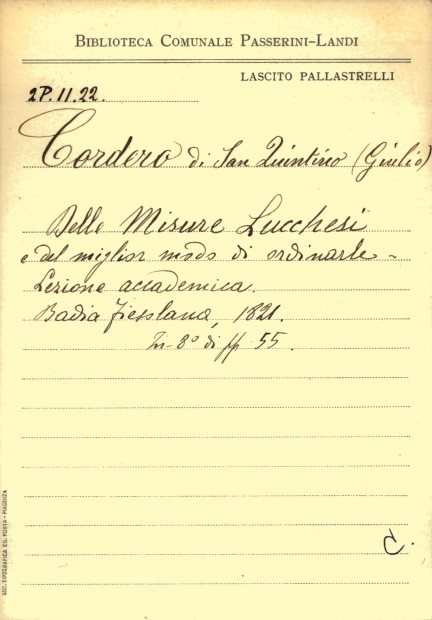 BIBLIOTECA COMUNALE PASSERINI-LANDI
LASCITO PALLASTRELLI
2P.11.22.
Cordero di San Quintino (Giulio)
Delle Misure Lucchesi
e del miglior modo di ordinarle -
Lezione accademica.
Badia Fiesolana, 1821.
In-8° di pp 55.
C.
SOC. TIPOGRAFICA ED. PORTA - PIACENZA